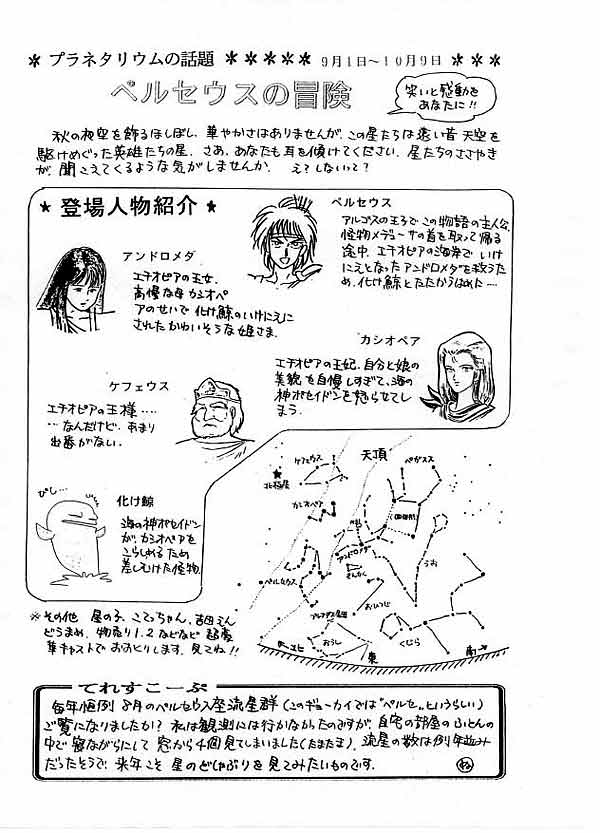 * プラネタリウムの話題 ***** 9月1日～10月9日 ***
ペルセウスの冒険
笑いと感動を
あなたに!!
秋の夜空を飾るほしぼし、華やかさはありませんが、この星たちは遠い昔 天空を
駆けめぐった英雄たちの星、さあ、あなたも耳を傾けてください、星たちのささやき
が 聞こえてくるような気がしませんか え?しないって?
★ 登場人物紹介 ★
ペルセウス
アルゴスの王子でこの物語の主人公
怪物メデューサの首を取って帰る
途中、エチオピアの海岸で いけ
にえとなったアンドロメダを救うた
め、化け鯨とたたかうはめに…
アンドロメダ
エチオピアの王女、
高慢な母 カシオペ
アのせいで 化け鯨のいけにえに
されたかわいそうな姫さま.
カシオペア
エチオピアの王妃、自分と娘の
美貌を自慢しすぎて、海の
神ポセイドンを怒らせてし
まう.
ケフェウス
エチオピアの王様……
…なんだけど、あまり
出番がない.
ぴし…
化け鯨
海の神ポセイドン
が、カシオペアを
こらしめるため
差しむけた怪物.
天頂
ケフェウス
ペガスス
北極星
カシオペア
アンドロメダ
うお
ペルセウス
さんかく
おひつじ
おうし
くじら
←北
東
南→
※その他 星の子、こてっちゃん、吉田えん
どうまめ、物売り1.2などなど 超豪
華キャストでおおくりします、見てね!!
てれすこーぷ
毎年恒例 8月のペルセウス座流星群(このギョーカイでは"ペルセ"というらしい)
ご覧になりましたか? 私は観測には行かなかったのですが、自宅の部屋のふとんの
中で寝ながらにして 窓から4個見てしまいました(たまたま). 流星の数は例年並み
だったそうで、来年こそ 星のどしゃぶりを見てみたいものです.